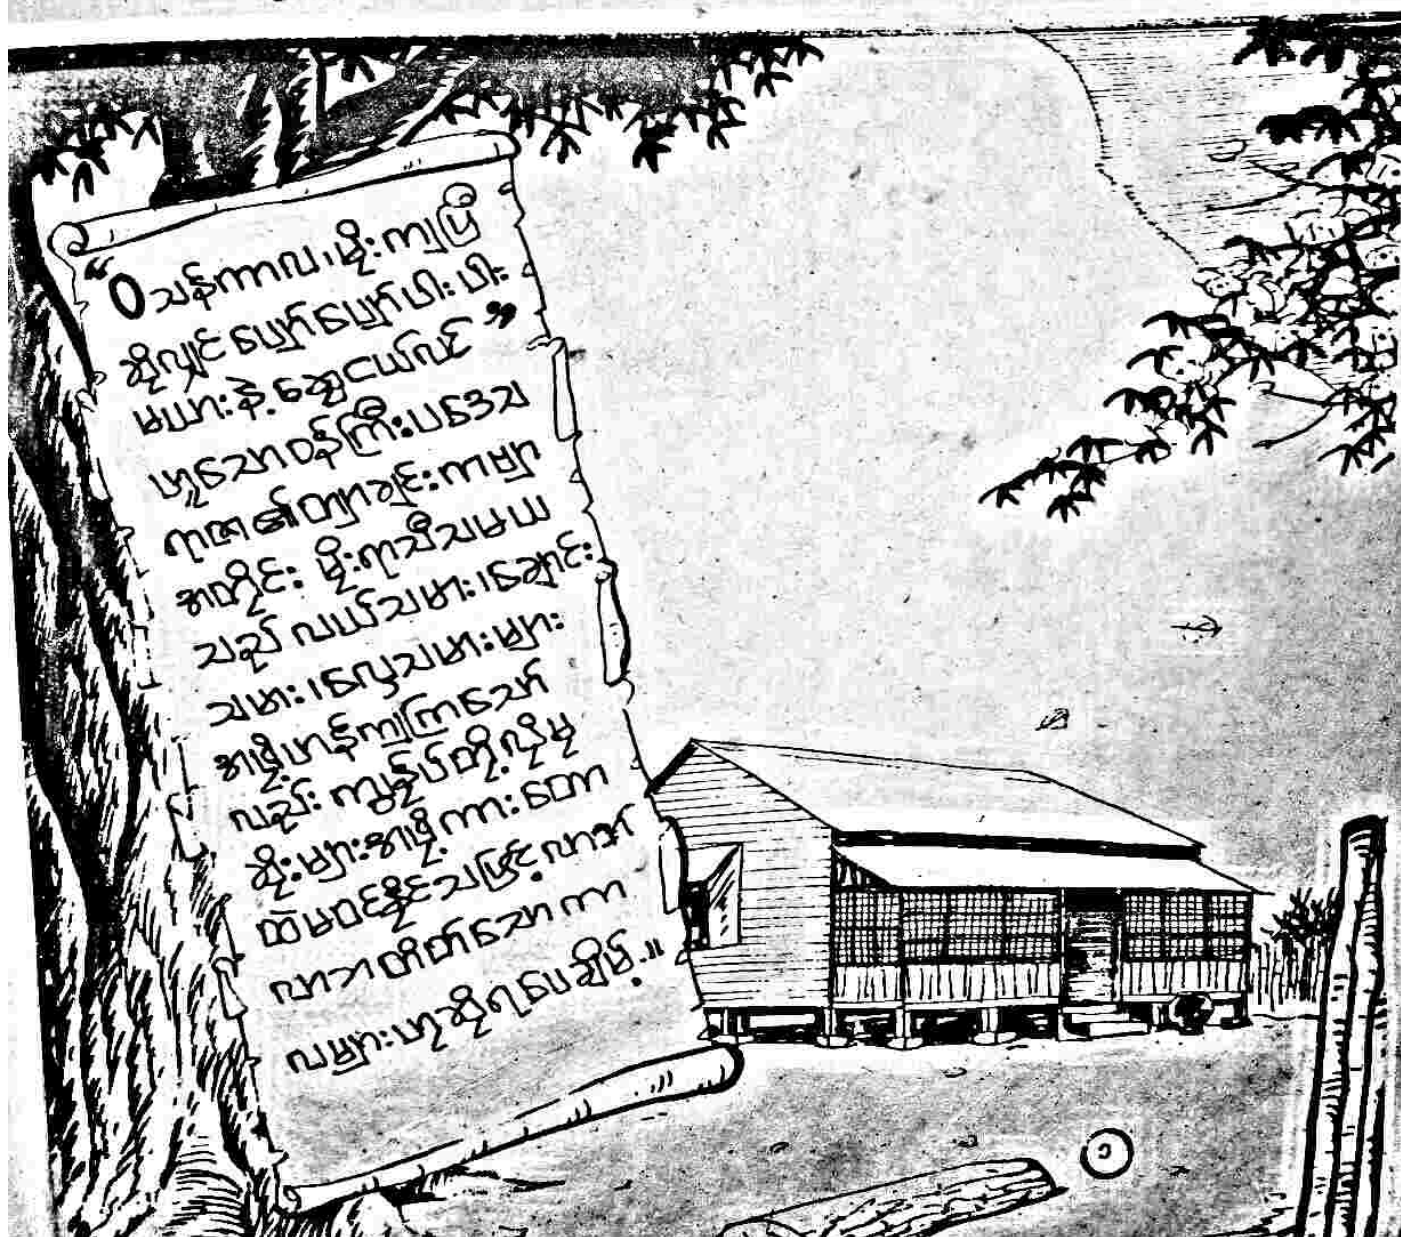 “ဝသန်ကာလ၊ မိုးကျပြီ
ဆိုလျှင် ပျော်ပျော်ပါးပါး
မယားနဲ့ ချွေငယ်လင်”
ဟူသော ဝန်ကြီးပဒေသ
ရာဇာ၏ တျာချင်းကဗျာ
အတိုင်း မိုးရာသီသမယ
သည် လယ်သမား၊ ချောင်း
သမား၊ လှေသမားများ
အဖို့ ဟန်ကျကြသော်
လည်း ကျွန်ုပ်တို့လို မု
ဆိုးများအဖို့ ကား တော
ထဲမဝင်နိုင်သဖြင့် လာဘ်
လာဘ တိတ်သော ကာ
လများဟု ဆိုရပေချိမ့်။
၁